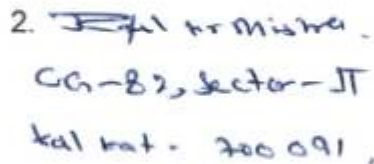 2. kr Mishra.
CG-82, Sector-II
kal kat. 700 091